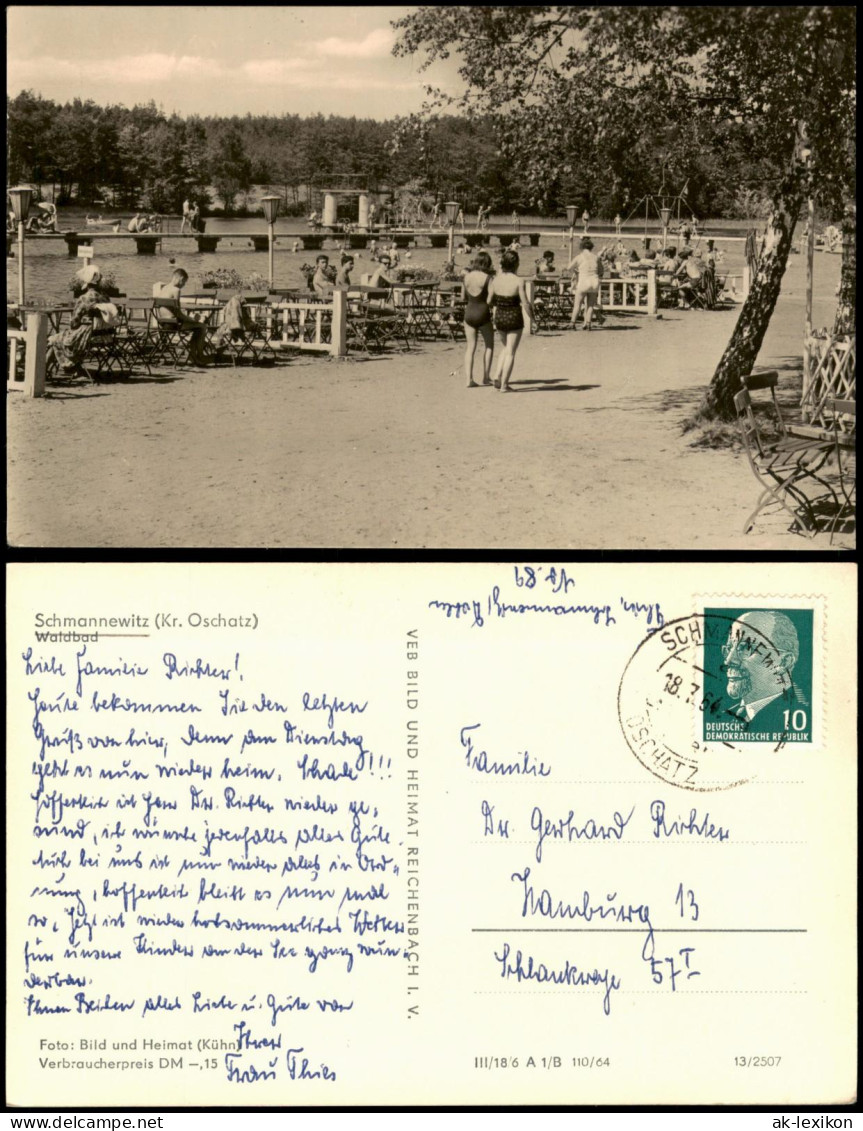 Schmannewitz (Kr. Oschatz)
Waldbad
Liebe Familie Richter!
Heute bekommen Sie den letzten
Gruß von hier, denn am Dienstag
geht es nun wieder heim. Schade!!!
Hoffentlich ist Herr Dr. Richter wieder ge-
sund, ich wünsche jedenfalls alles Gute.
Auch bei uns ist nun wieder alles in Ord-
nung, hoffentlich bleibt es nun mal
so. Jetzt ist wieder hochsommerliches Wetter
für unsere Kinder an der See ganz wun-
derbar.
Ihnen Beiden alles Liebe u. Gute von
Ihrer
Frau Thies
Foto: Bild und Heimat (Kühn)
Verbraucherpreis DM –,15
VEB BILD UND HEIMAT REICHENBACH I. V.
Thies, Schmannewitz,
No. 89
SCHMANNEWITZ
18.7.64
OSCHATZ
10
DEUTSCHE
DEMOKRATISCHE REPUBLIK
Familie
Dr. Gerhard Richter
Hamburg 13
Schlankreye 57 I
III/18/6 A 1/B 110/64
13/2507
ak-lexikon